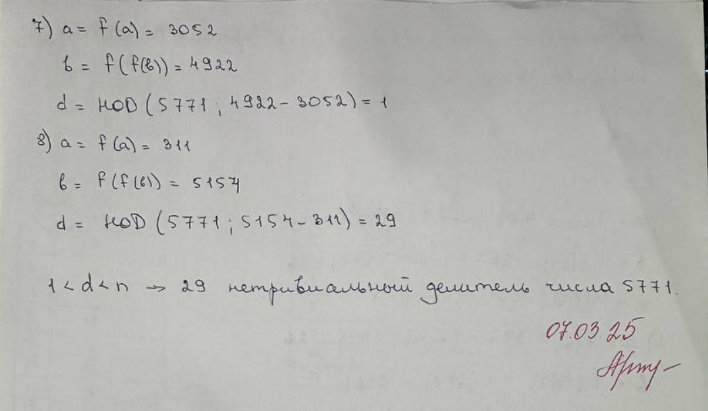 7) a = f(a) = 3052
b = f(f(b)) = 4922
d = НОD (5771; 4922 - 3052) = 1
8) a = f(a) = 311
b = f(f(b)) = 5154
d = НОD (5771; 5154 - 311) = 29
1 < d < n → 29 нетривиальный делитель числа 5771.
07.03.25